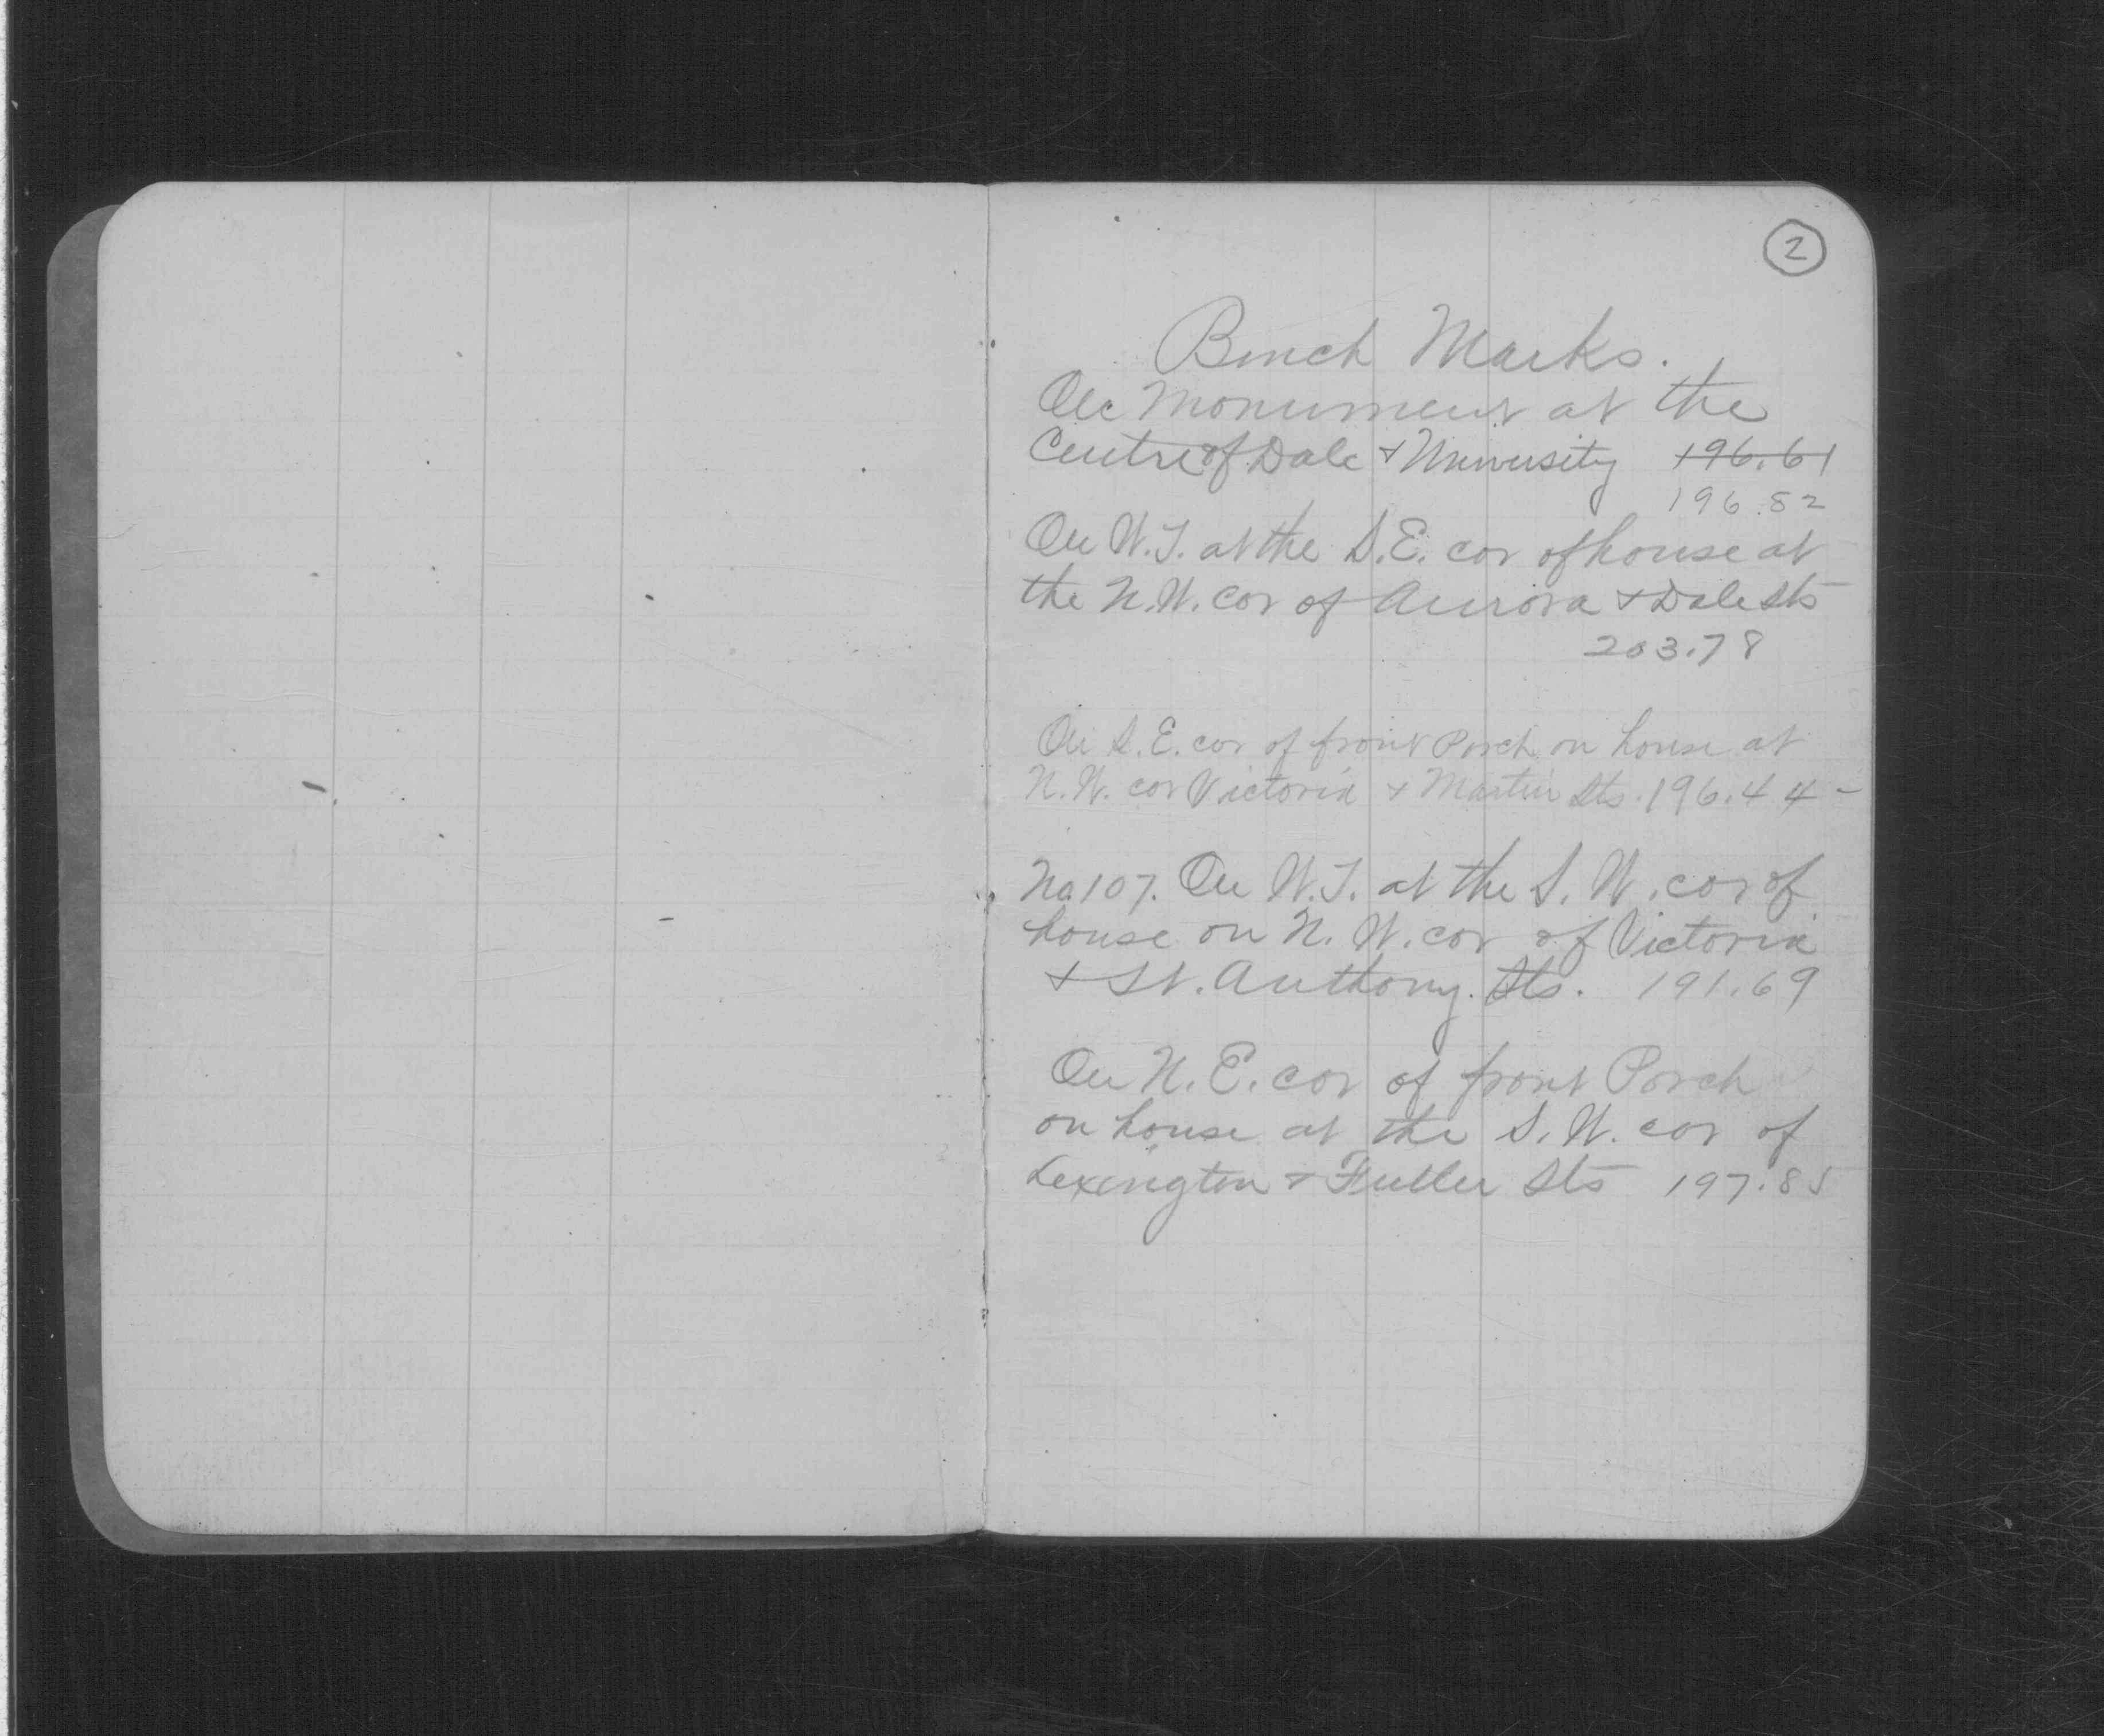 2
Bench Marks.
On Monument at the
Centre of Dale & University 196.61
196.82
On W.T. at the S.E. cor of house at
the N.W. cor of Aurora & Dale Sts
203.78
On S.E. cor of front Porch on house at
N.W. cor Victoria & Martin Sts. 196.44-
No. 107. On W.T. at the S.W. cor of
house on N.W. cor of Victoria
& St. Anthony. Sts. 191.69
On N.E. cor of front Porch
on house at the S.W. cor of
Lexington & Fuller Sts 197.85